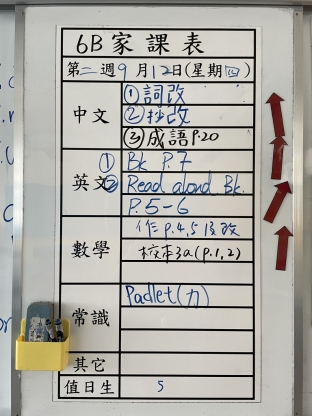 6B 家課表
第二週 9月12日(星期四)
中文
①詞改
②抄改
③成語 P.20
英文
① Bk P.7
② Read aloud Bk.
P.5-6
數學
作 P.4,5 及改
校本3a(P.1,2)
常識
Padlet(力)
其它
值日生
5